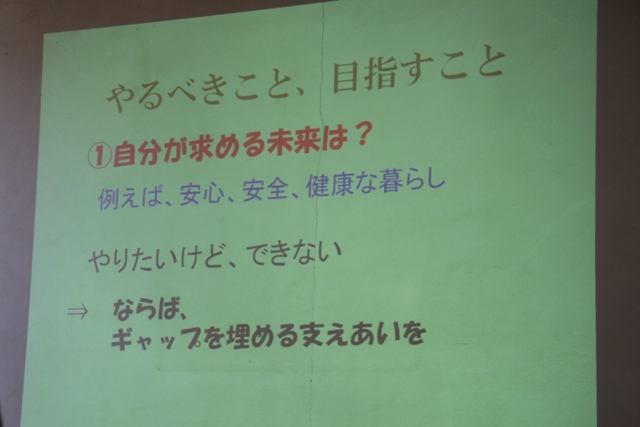 やるべきこと、目指すこと
①自分が求める未来は？
例えば、安心、安全、健康な暮らし
やりたいけど、できない
⇒ ならば、
ギャップを埋める支えあいを